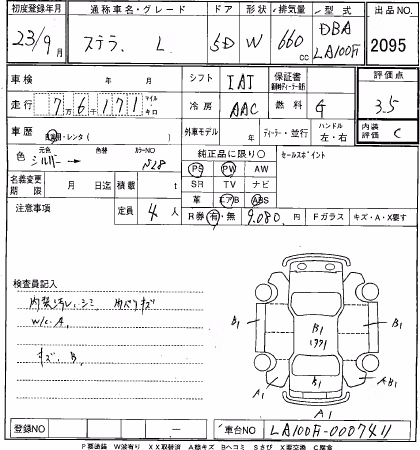 初度登録年月 通称車名・グレード ドア 形状 排気量 型式 出品NO
23/9月 ステラ. L 5D W 660cc DBA LA100F 2095
車検 年 月 シフト IAT 保証書 評価点
走行 7万6千171 マイル キロ 冷房 AAC 燃料 G 3.5
車歴 自家用・レンタ( ) 外車モデル 年 ディーラー・並行 ハンドル 左・右 内装 C
色 元色 シルバー → 色替 カラーNO N28 純正品に限り○ セールスポイント
PS PW AW
名義変更期限 月 日迄 積載 t SR TV ナビ
革 エアB ABS
注意事項 定員 4人 R券 有・無 9,080円 Fガラス キズ・A・X要す
検査員記入
内装汚れ、シミ 内ハリキズ
W/C.A.
キズ、B.
B1 B1 B1
A1 B1 AB1
A1
登録NO — 車台NO LA100F-0007411
P要塗装 W波有り XX取替済 A線キズ Bヘコミ Sサビ X要交換 C腐食